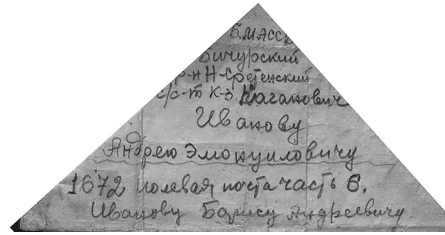 Б.МАСС
Бичурский
р-н Н-Сретенский
с/с-т к-з. Каганович
Иванову
Андрею Эмокуиловичу
1672 полевая почта часть 6.
Иванову Борису Андреевичу.